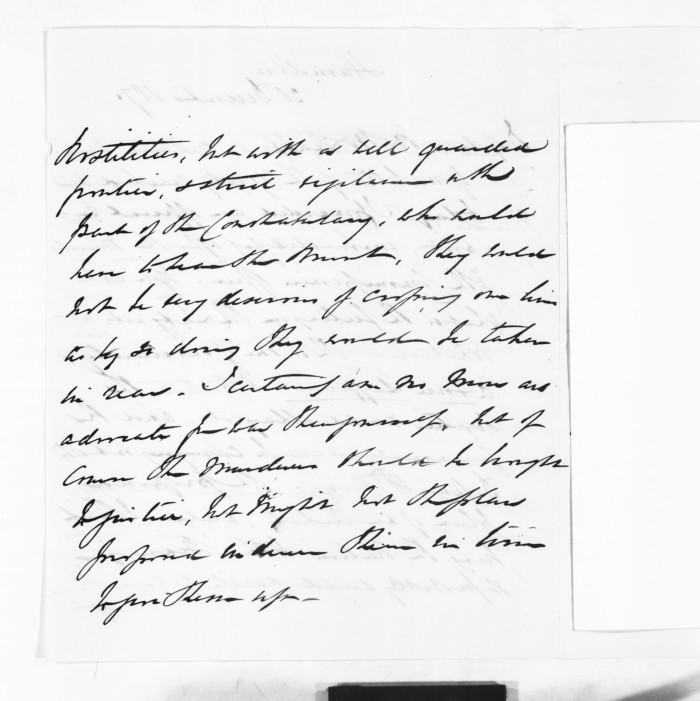 hostilities, but with a well guarded
frontier, & strict vigilance on the
part of the Constabulary, who would
have to bear the brunt, they would
not be very desirous of crossing our lines
as by so doing they would be taken
in rear. I certainly am no more an
advocate for war than yourself, but of
course the murderers should be brought
to justice, but might not the plan
proposed induce them in time
to give them up —